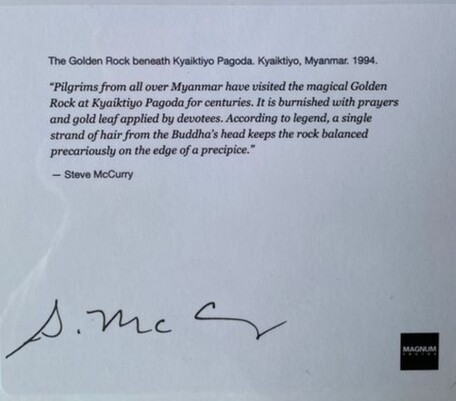 The Golden Rock beneath Kyaiktiyo Pagoda. Kyaiktiyo, Myanmar. 1994.
“Pilgrims from all over Myanmar have visited the magical Golden
Rock at Kyaiktiyo Pagoda for centuries. It is burnished with prayers
and gold leaf applied by devotees. According to legend, a single
strand of hair from the Buddha’s head keeps the rock balanced
precariously on the edge of a precipice.”
— Steve McCurry
S. McCy
MAGNUM
PHOTOS